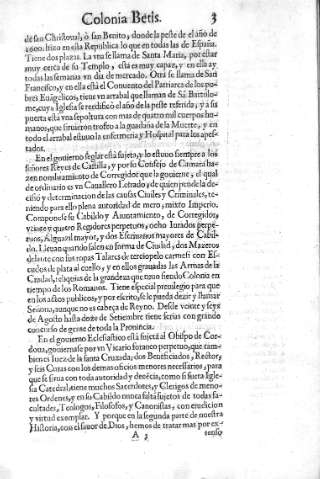 Colonia Betis. 3
de san Christoual, ò san Benito, donde la peste de el año de
1600. hizo en esta Republica lo que en todas las de España.
Tiene dos plazas. La vna se llama de Santa Maria, por estar
muy cerca de su Templo, esta es muy capaz, y en ella ay
todas las semanas vn dia de mercado. Otra se llama de San
Francisco, y en ella està el Conuento del Patriarca de los po-
bres Euägelicos, tiene vn arrabal que llaman de Sã Bartolo-
me, cuya Iglesia se reedificò el año de la peste referida, y à su
puerta està vna sepoltura con mas de quatro mil cuerpos hu-
manos, que siruieron trofeo a la guadaña de la Muerte, y en
todo el arrabal estuuo la enfermeria y Hospital para los apes-
tados.
En el gouierno seglar està sujeta, y lo estuuo siempre a los
señores Reyes de Castilla, y por su Consejo de Camara ha-
zen nombramiento de Corregidor que la gouierne, el qual
de ordinario es vn Cauallero Letrado, de quien pende la de-
cision y determinacion de las causas Ciuiles y Criminales, te-
niendo para ello plena autoridad de mero, mixto Imperio.
Componese su Cabildo y Aiuntamiento, de Corregidor,
veinte y quatro Regidores perpetuos, ocho Iurados perpe-
tuos, Alguazil mayor, y dos Escriuanos mayores de Cabil-
do. Lleuan quando salen en forma de Ciudad, dos Mazeros
delante con sus ropas Talares de terciopelo carmesi con Es-
cudos de plata al cuello, y en ellos grauadas las Armas de la
Ciudad, reliquias de la grandeza que tuuo siendo Colonia en
tiempo de los Romanos. Tiene especial preuilegio para que
en los actos publicos, y por escrito, se le pueda dezir y llamar
Señoria, aunque no es cabeça de Reyno. Desde veinte y seys
de Agosto hasta doze de Setiembre tiene ferias con grande
concurso de gente de toda la Prouincia.
En el gouierno Eclesiastico està sujeta al Obispo de Cor-
doua, gouiernase por vn Vicario foraneo perpetuo, que tam-
bien es Iuez de la santa Cruzada, dos Beneficiados, Rector,
y seis Curas con los demas oficios menores necessarios, para
que se sirua con toda autoridad y decécia, como si fuera Igle-
sia Catedral, tiene muchos Sacerdotes, y Clerigos de meno-
res Ordenes, y en su Cabildo nunca falta sujetos de todas fa-
cultades, Teologos, Filosofos, y Canonistas, con erudicion
y virtud exemplar. Y porque en la segunda parte de nuestra
Historia, con el fauor de Dios, hemos de tratar mas por ex-
A 3 tenso